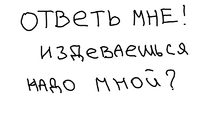 ОТВЕТЬ МНЕ!
ИЗДЕВАЕШЬСЯ
НАДО МНОЙ?